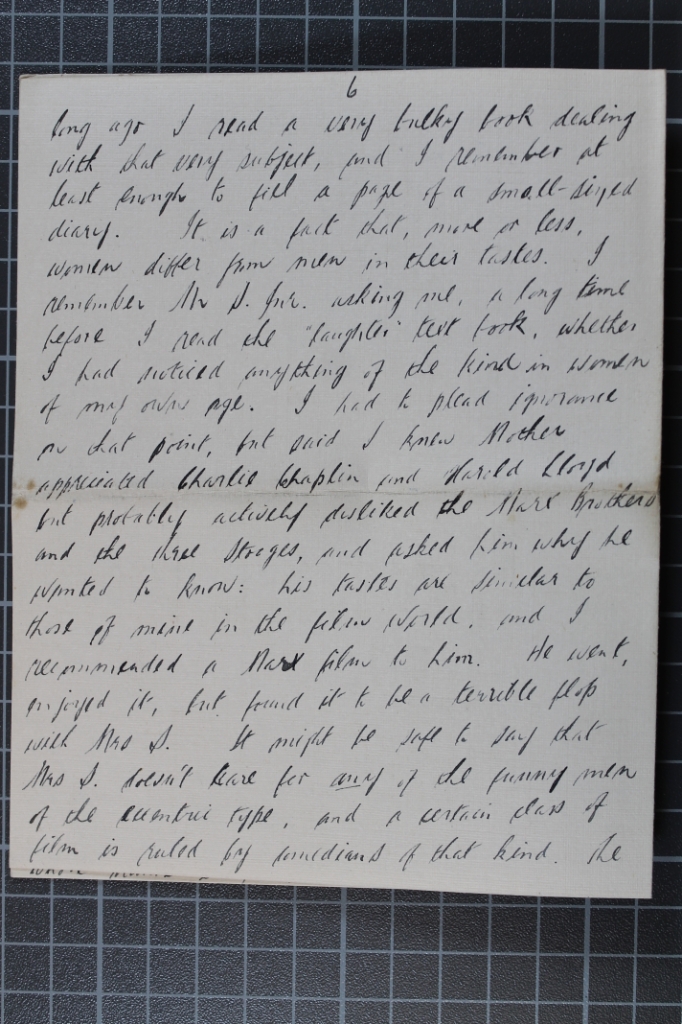 6
long ago I read a very bulky book dealing
with that very subject, and I remember at
least enough to fill a page of a small-sized
diary. It is a fact that, more or less,
women differ from men in their tastes. I
remember Mr S. Jnr. asking me, a long time
before I read the "laughter" text book, whether
I had noticed anything of the kind in women
of my own age. I had to plead ignorance
on that point, but said I knew Mother
appreciated Charlie Chaplin and Harold Lloyd
but probably actively disliked the Marx Brothers
and the three Stooges, and asked him why he
wanted to know: his tastes are similar to
those of mine in the film world, and I
recommended a Marx film to him. He went,
enjoyed it, but found it to be a terrible flop
with Mrs S. It might be safe to say that
Mrs S. doesn't care for any of the funny men
of the eccentric type, and a certain class of
film is ruled by comedians of that kind. The